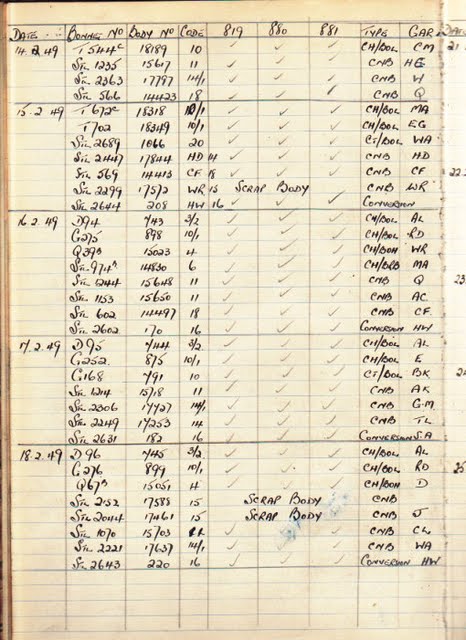 DATE BONNET Nº BODY Nº CODE 819 880 881 TYPE GAR DATE
14.2.49 T544ᶜ 18189 10 ✓ ✓ ✓ CH/BOL CM 21
STL 1235 15617 11 ✓ ✓ ✓ CNB HG
STL 2363 17797 14/1 ✓ ✓ ✓ CNB W
STL 566 14423 18 ✓ ✓ ✓ CNB Q
15.2.49 T672ᶜ 18318 10/1 ✓ ✓ ✓ CH/BOL MA
T702 18349 10/1 ✓ ✓ ✓ CH/BOL EG
STL 2689 1066 20 ✓ ✓ ✓ CT/BOL WA
STL 2447 17844 HD 14 ✓ ✓ ✓ CNB HD
STL 569 14413 CF 18 ✓ ✓ ✓ CNB CF 22
STL 2299 17572 WR 15 SCRAP BODY CNB WR
STL 2644 208 HW 16 ✓ ✓ ✓ CONVERSION
16.2.49 D94 743 3/2 ✓ ✓ ✓ CH/BOL AL
G275 898 10/1 ✓ ✓ ✓ CH/BOL RD
Q39ᴮ 15023 4 ✓ ✓ ✓ CH/BOH WR
STL 974ᴮ 14830 6 ✓ ✓ ✓ CH/BRB MA
STL 1244 15648 11 ✓ ✓ ✓ CNB Q 23
STL 1153 15650 11 ✓ ✓ ✓ CNB AC
STL 602 14497 18 ✓ ✓ ✓ CNB CF
STL 2602 170 16 ✓ ✓ ✓ CONVERSION HW
17.2.49 D95 744 3/2 ✓ ✓ ✓ CH/BOL AL
G252 875 10/1 ✓ ✓ ✓ CH/BOL E
G168 791 10 ✓ ✓ ✓ CT/BOL BK 24
STL 1214 15718 11 ✓ ✓ ✓ CNB AK
STL 2306 17727 14/1 ✓ ✓ ✓ CNB G.M
STL 2249 17253 14 ✓ ✓ ✓ CNB TL
STL 2631 182 16 ✓ ✓ ✓ CONVERSION SA
18.2.49 D96 745 3/2 ✓ ✓ ✓ CH/BOL AL
G276 899 10/1 ✓ ✓ ✓ CH/BOL RD 25
Q67ᴮ 15051 4 ✓ ✓ ✓ CH/BOH D
STL 2152 17588 15 SCRAP BODY CNB
STL 2044 17461 15 SCRAP BODY CNB J
STL 1070 15703 11 ✓ ✓ ✓ CNB CL
STL 2221 17637 14/1 ✓ ✓ ✓ CNB WA
STL 2643 220 16 ✓ ✓ ✓ CONVERSION HW